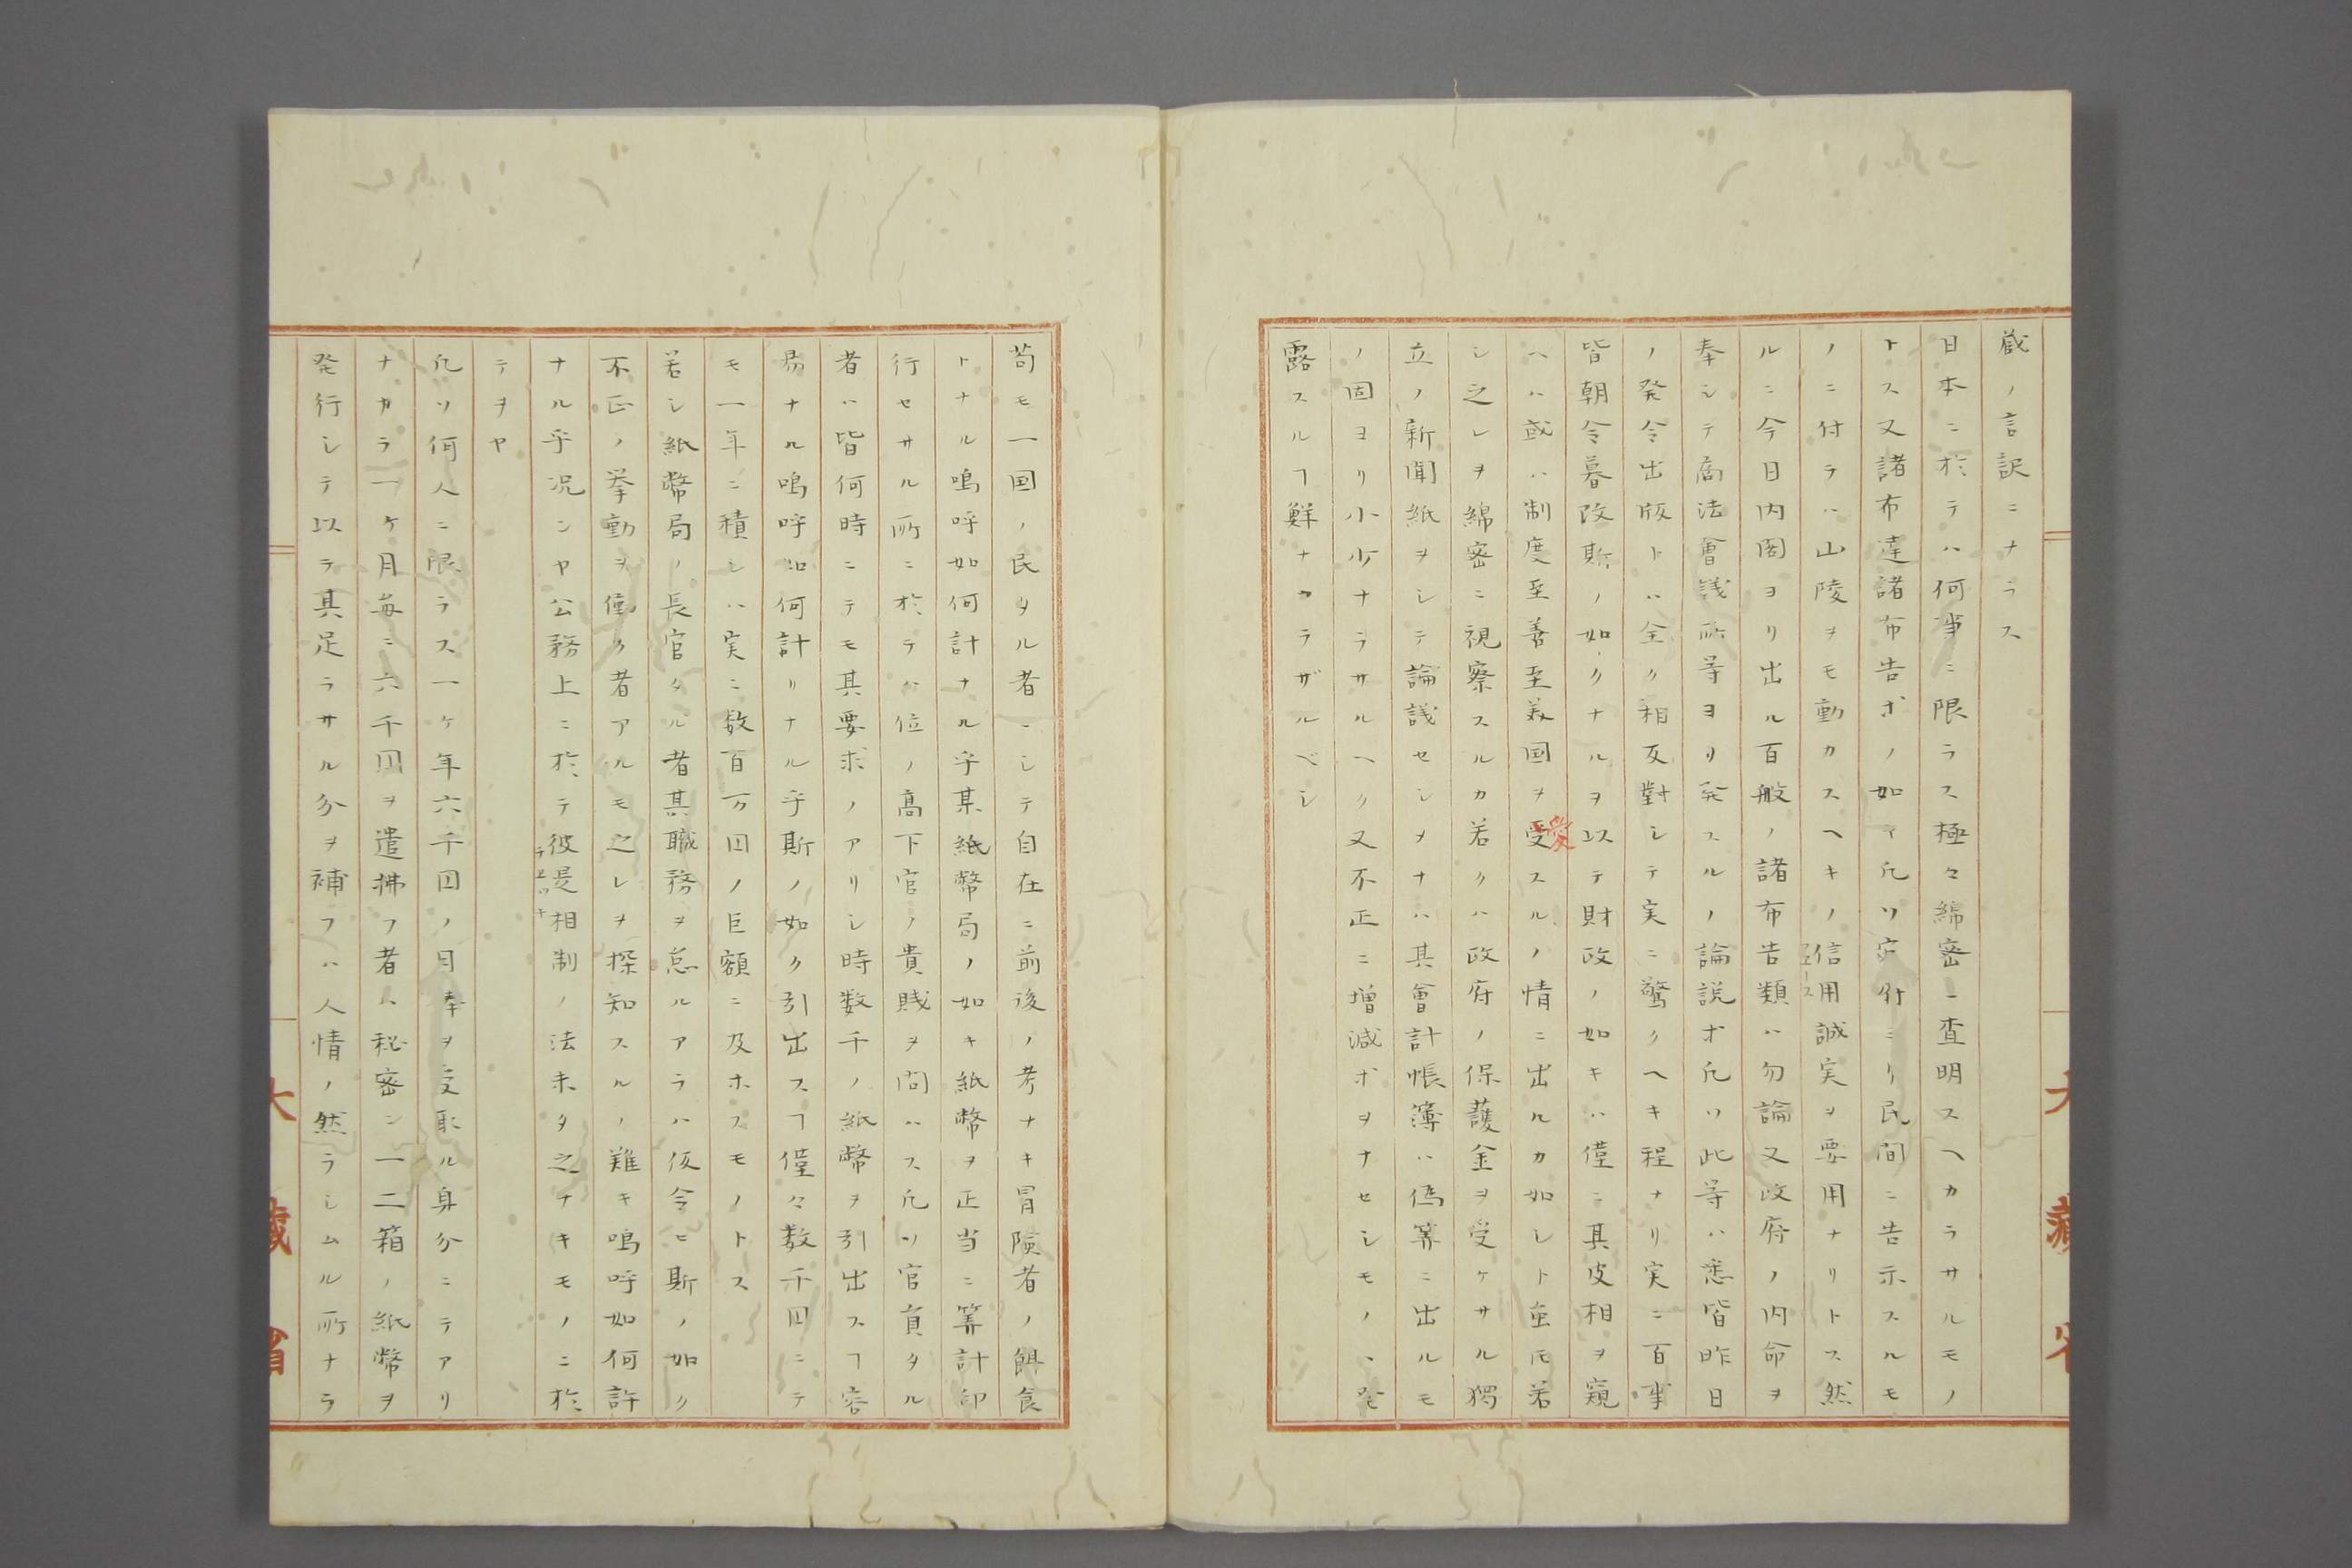 蔵ノ言訳ニナラス
日本ニ於テハ何事ニ限ラス極々綿密ニ査明スヘカラサルモノ
トス又諸布達諸布告オノ如キ凡ソ府ニリ民間ニ告示スルモ
ノニ付テハ山陵ヲモ動カスヘキノ信用誠実ヲ要用ナリトス然
ルニ今日内閣ヨリ出ル百般ノ諸布告類ハ勿論又政府ノ内命ヲ
奉シテ商法會議所等ヨリ発スルノ論説オ凡ソ此等ハ悉皆昨日
ノ発令出版トハ全ク相反對シテ実ニ驚クヘキ程ナリ実ニ百事
皆朝令暮改斯ノ如クナルヲ以テ財政ノ如キハ僅ニ其皮相ヲ窺
愛
ハハ或ハ制度至善至美国ヲ受スルノ情ニ出ルカ如シト虽𪜈若
シ之レヲ綿密ニ視察スルカ若クハ政府ノ保護金ヲ受ケサル獨
立ノ新聞紙ヲシテ論議セシヲナハ其會計帳簿ハ偽筭ニ出ルモ
ノ固ヨリ小少ナラサルヘク又不正ニ増減オヲナセシモノヽ発
露スルヿ鮮ナカラザルベシ
大藏省
苟モ一国ノ民タル者ニシテ自在ニ前後ノ考ナキ冒険者ノ餌食
トナル嗚呼如何計ナル乎某紙幣局ノ如キ紙幣ヲ正当ニ筭計印
行セサル所ニ於テハ位ノ高下官ノ貴賎ヲ問ハス凡ソ官員タル
者ハ皆何時ニテモ其要求ノアリシ時数千ノ紙幣ヲ引出スヿ容
易ナル嗚呼如何計リナル乎斯ノ如ク引出スヿ僅々数千囙ニテ
モ一年ニ積シハ実ニ数百万囙ノ巨額ニ及ホスモノトス
若シ紙幣局ノ長官タル者其職務ヲ怠ルアラハ仮令ヒ斯ノ如ク
不正ノ挙動ヲ働ク者アルモ之レヲ探知スルノ難キ嗚呼如何許
ナル乎况ンヤ公務上ニ於テ彼是相制ノ法未タ之ナキモノニ於
テヲヤ
凡ソ何人ニ限ラス一ケ年六千囙ノ月奉ヲ受取ル身分ニテアリ
ナカラ一ケ月毎ニ六千囙ヲ遣拂フ者ハ秘密ン一二箱ノ紙幣ヲ
発行シテ以テ其足ラサル分ヲ補フハ人情ノ然ラシムル所ナラ
大藏省